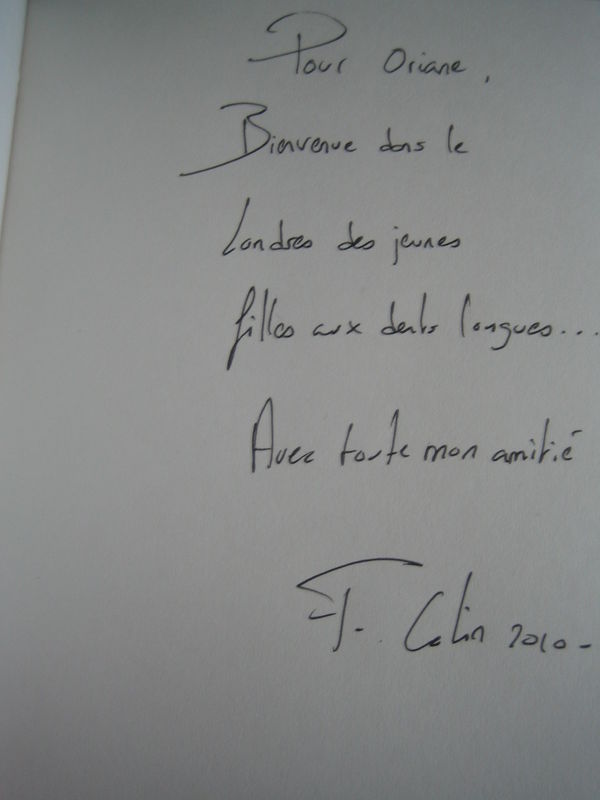 Pour Oriane,
Bienvenue dans le
Londres des jeunes
filles aux dents longues...
Avec toute mon amitié
F. Colin 2010-